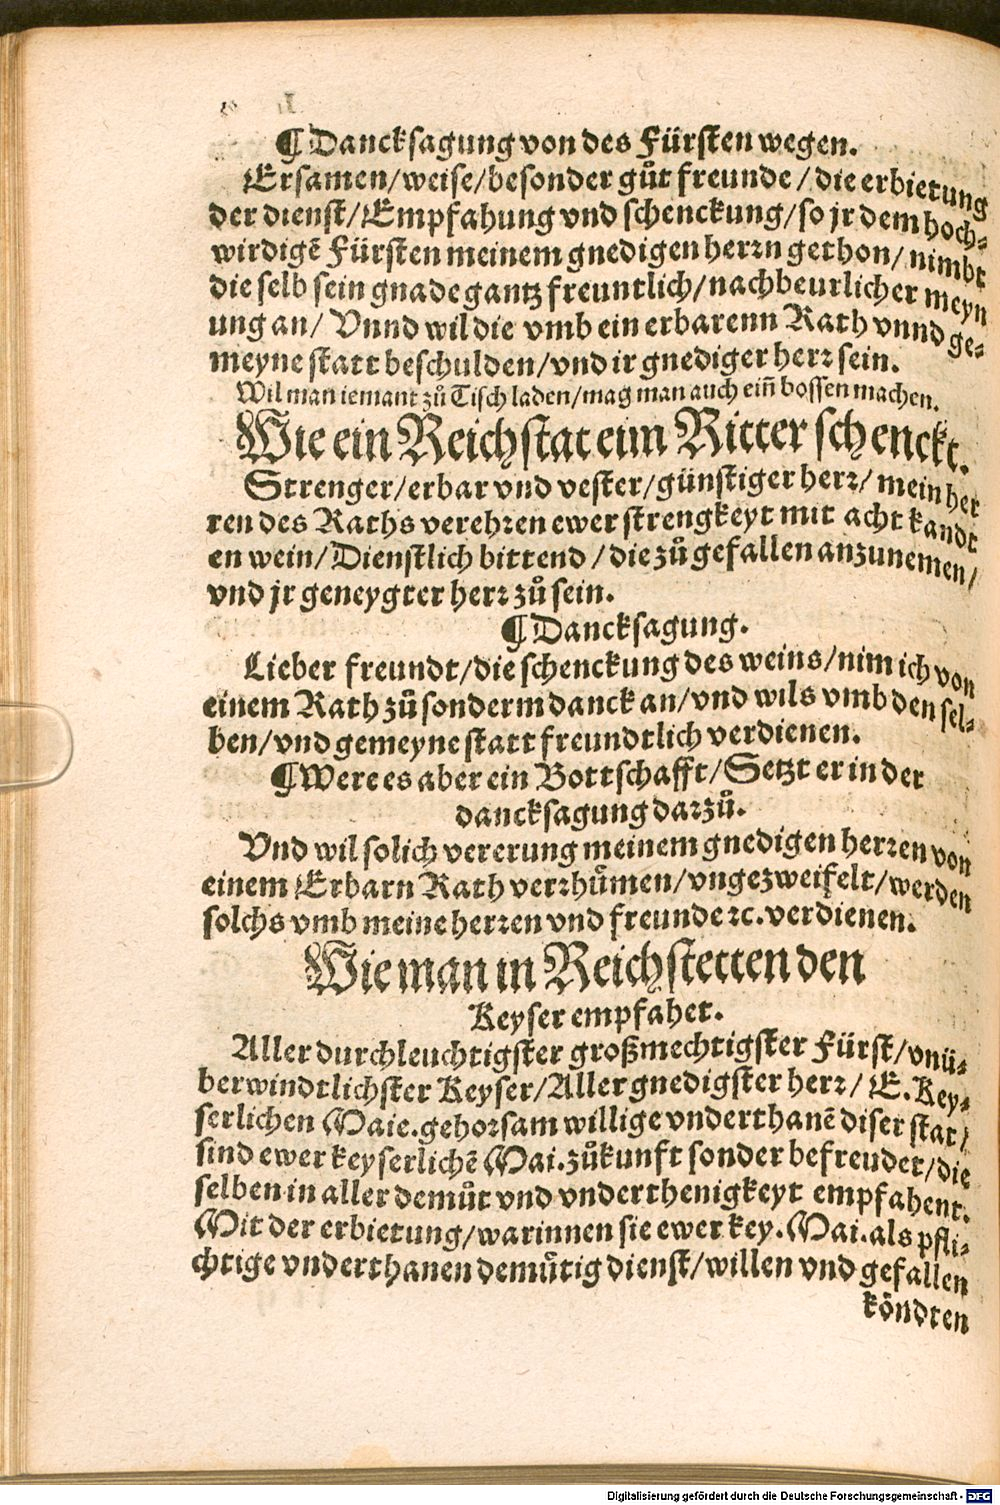 ¶ Dancksagung von des Fürsten wegen.
Ersamen/weise/besonder gůt freunde/die erbietung
der dienst/Empfahung vnd schenckung/so jr dem hoch-
wirdigẽ Fürsten meinem gnedigen herrn gethon/nimbt
die selb sein gnade gantz freuntlich/nachbeurlicher meyn
ung an/ Vnnd wil die vmb ein erbarenn Rath vnnd ge-
meyne statt beschulden/vnd ir gnediger herr sein.
Wil man iemant zů Tisch laden/mag man auch ein̄ bossen machen.
Wie ein Reichstat eim Ritter schenckt.
Strenger/erbar vnd vester/günstiger herr/ mein her
ren des Raths verehren ewer strengkeyt mit acht kandt
en wein/Dienstlich bittend/die zů gefallen anzunemen/
vnd jr geneygter herr zů sein.
¶ Dancksagung.
Lieber freundt/die schenckung des weins/nim ich von
einem Rath zů sonderm danck an/vnd wils vmb den sel-
ben/vnd gemeyne statt freundtlich verdienen.
¶ Were es aber ein Bottschafft/Setzt er in der
dancksagung darzů.
Vnd wil solich vererung meinem gnedigen herren von
einem Erbarn Rath verrhůmen/vngezweifelt/werden
solchs vmb meine herren vnd freunde ꝛc. verdienen.
Wie man in Reichstetten den
Keyser empfahet.
Aller durchleuchtigster großmechtigster Fürst/vnü-
berwindtlichster Keyser/Aller gnedigster herr/ E. Key-
serlichen Maie. gehorsam willige vnderthanẽ diser stat/
sind ewer keyserlichẽ Mai. zůkunft sonder befreudet/die
selben in aller demůt vnd vnderthenigkeyt empfahent.
Mit der erbietung/warinnen sie ewer key. Mai. als pfli-
chtige vnderthanen demůtig dienst/willen vnd gefallen
köndten
Digitalisierung gefördert durch die Deutsche Forschungsgemeinschaft - DFG